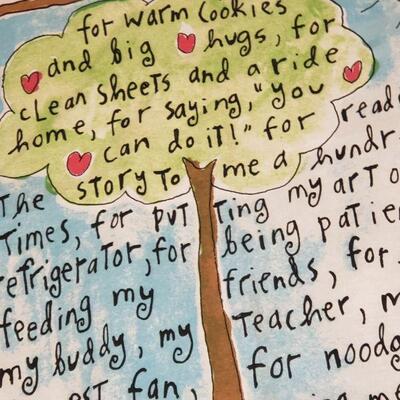 for warm cookies
and big hugs, for
clean sheets and a ride
home, for saying, "you
can do it!" for
story to me a
The
Times, for put ting my art
refrigerator, for being
feeding my friends, for
my buddy, my Teacher,
fan, for